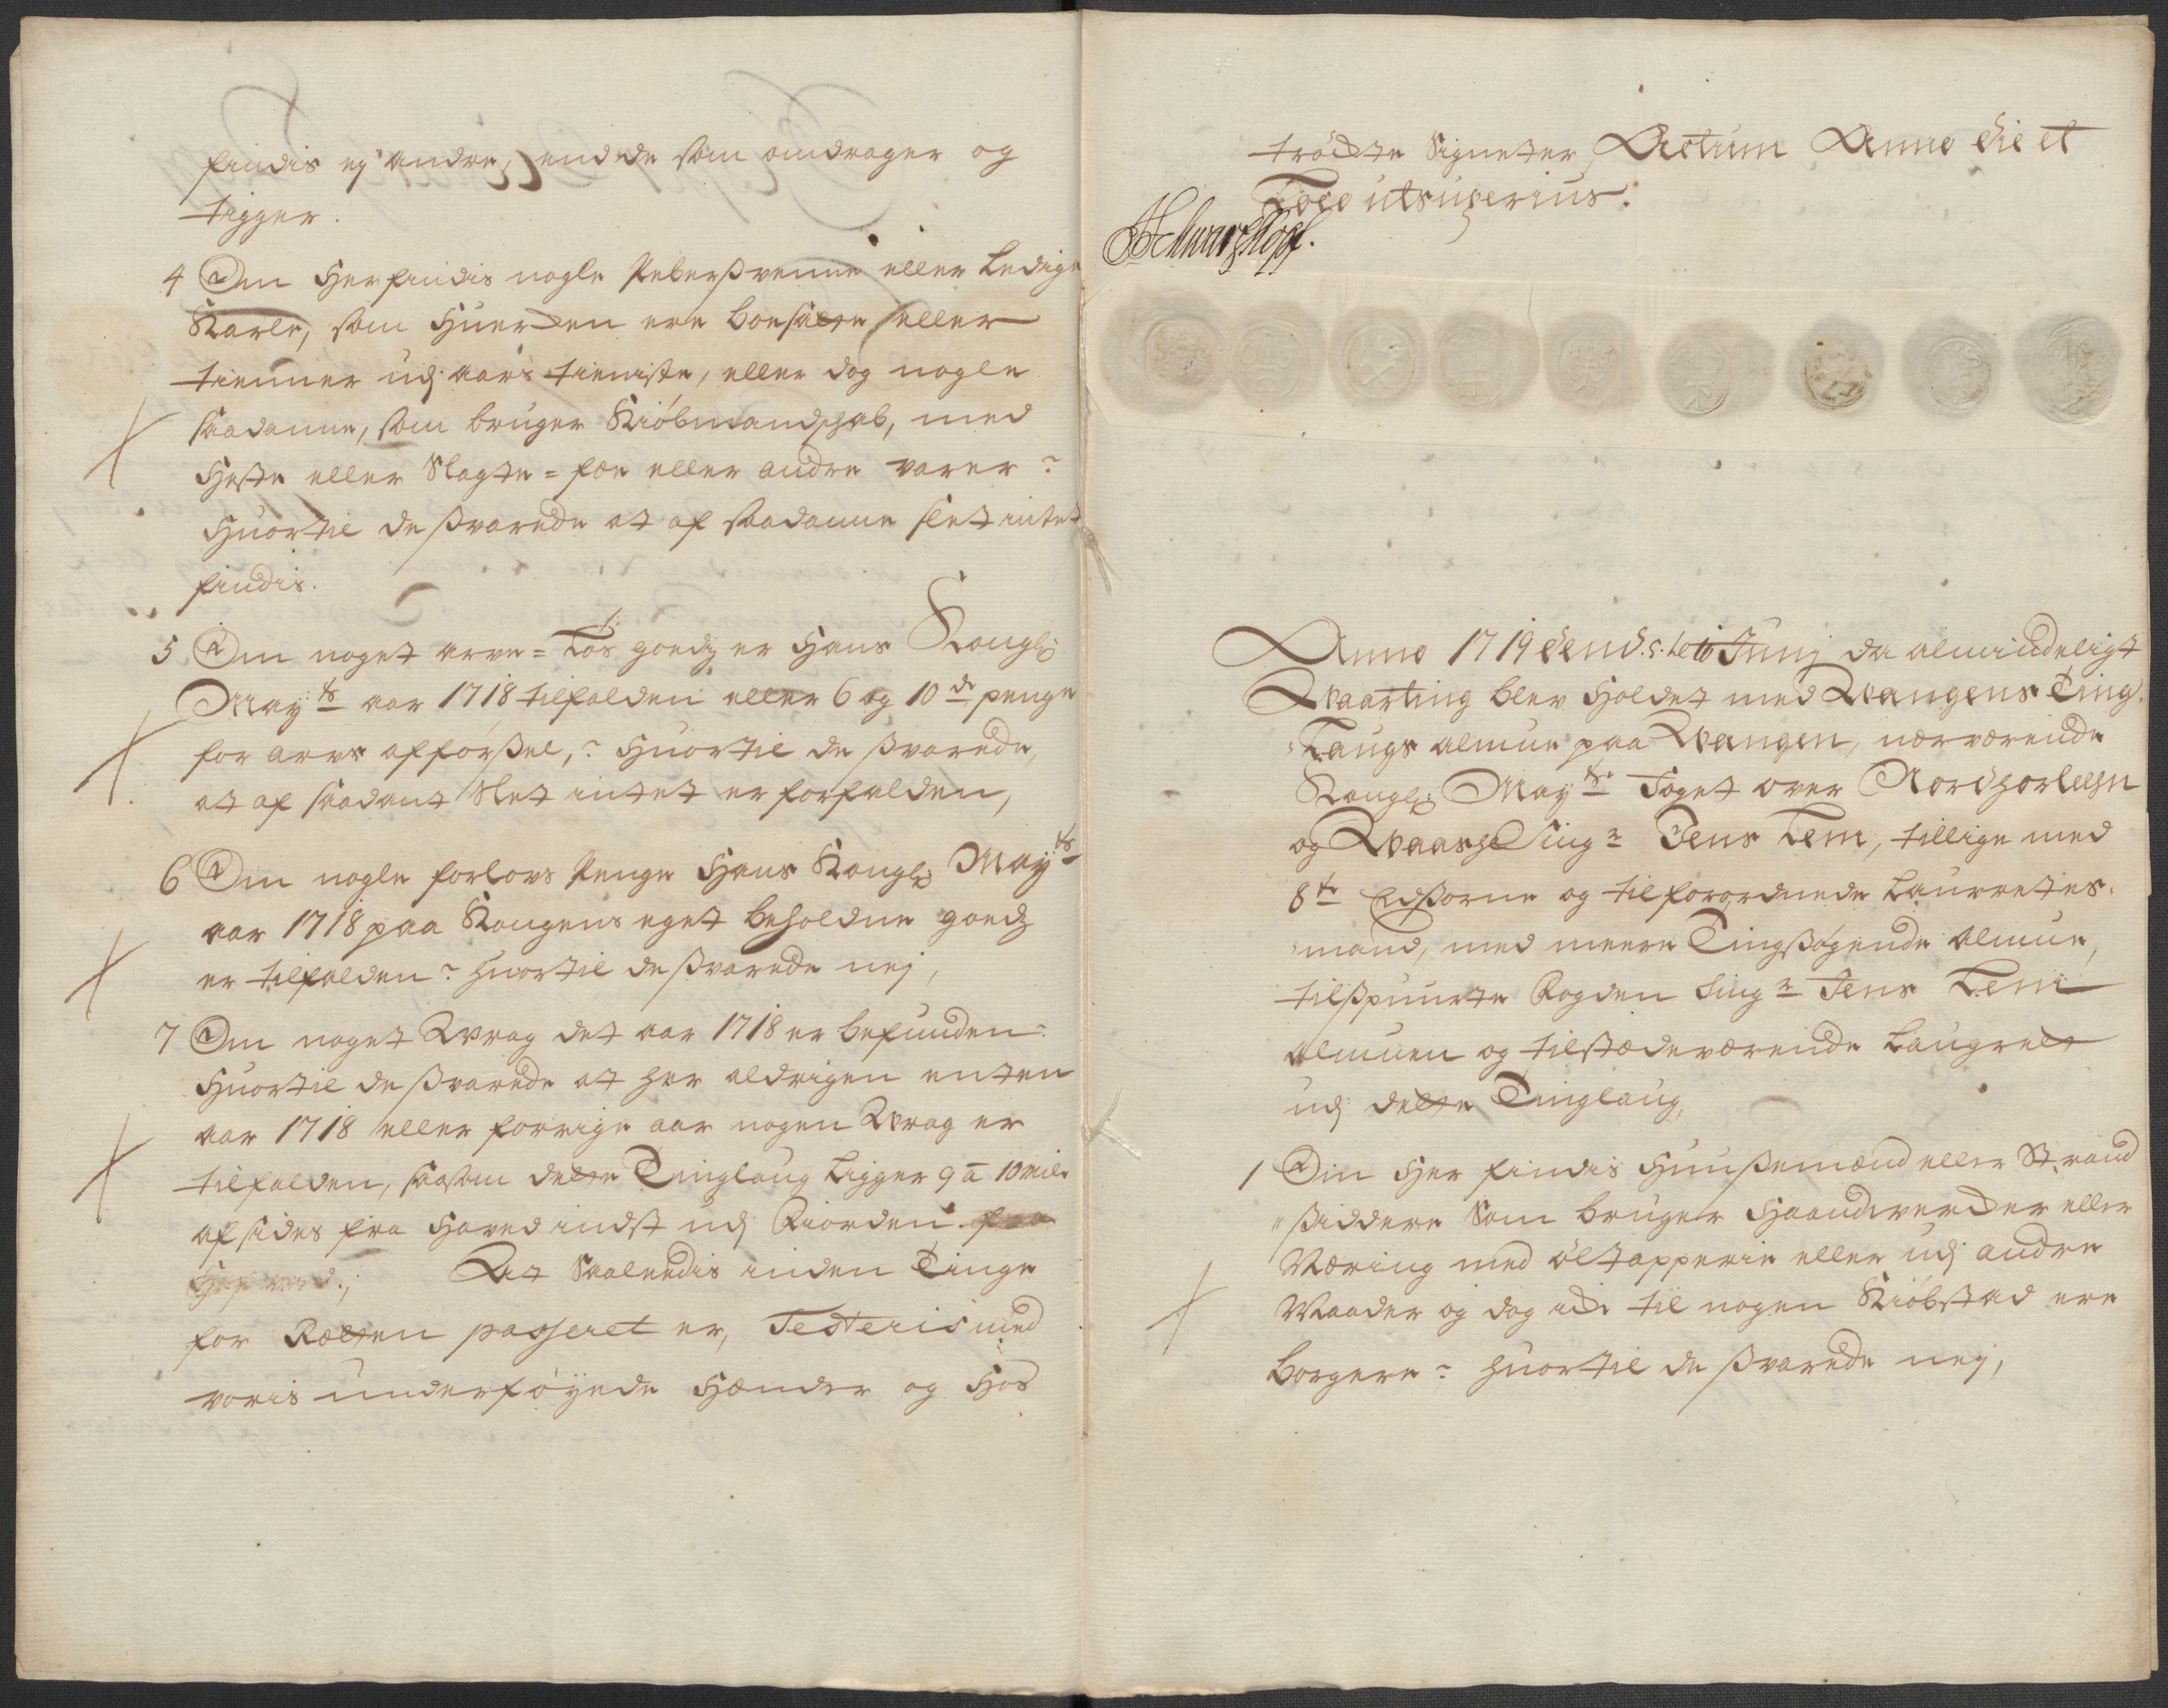 findis ej andre, end de som omdrager og
tigger.
4 Om Her findis nogle Peberßvenne eller Ledige
Karle, som Huercken ere boesatte eller
tienner udj aars tieniste, eller dog nogle
saadanne, som bruger Kiöbmandschab, med
Heste eller Slagte=fæe eller andre varer?
Huortil de ßvarede at af saadanne slet intet
findis.
5 Om noget arve=Løs goedz er Hans Kongl:
Mayts aar 1718 tilfalden eller 6 og 10de penge
for arvs afførßel,? Huortil de ßvarede,
at af saadant Slet intet er forfalden,
6 Om nogle forlovs Penge Hans Kongl: Mayts
aar 1718 paa Kongens eget beholdne goedz
er tilfalden? Huortil de ßvarede nej,
7 Om noget Wrag det aar 1718 er befunden?
Huortil de ßvarede at her aldrigen enten
aar 1718 eller forrige aar nogen Wrag er
tilfalden, saasom dette Tinglaug Ligger 9 a 10 mile
af sides fra Haved indst udj Fiorden
At Saaledis inden Tinge
for Rætten passeret er, Testeris med
voris underføyede Hænder og Hos
tröckte Signeter Actum Anno die et
Loco utsuperius.
Anno 1719 dend Junj da almindeligt
Waarting blev Holdet med Wangens Ting=
=Laugs almue paa Wangen, nærværende
Kongl: Mayts Foget over Nordhorlehn
og Waasz Sing:r Jens Lem, tillige med
8te Edßorne og tilforordnede Laurettes=
=mænd, med meere Tingßøgende Almue,
tilßpuurte Fogden Sing:r Jens Lem
almuen og tilstædeværende Laugrett
udj dette Tinglaug,
1 Om Her findis Huußemænd eller Strand
=ßiddere Som bruger Haandvercker eller
Næring med öltapperie eller udj andre
Maader og dog icke til nogen Kiöbstad ere
borgere? Huortil de ßvarede nej,